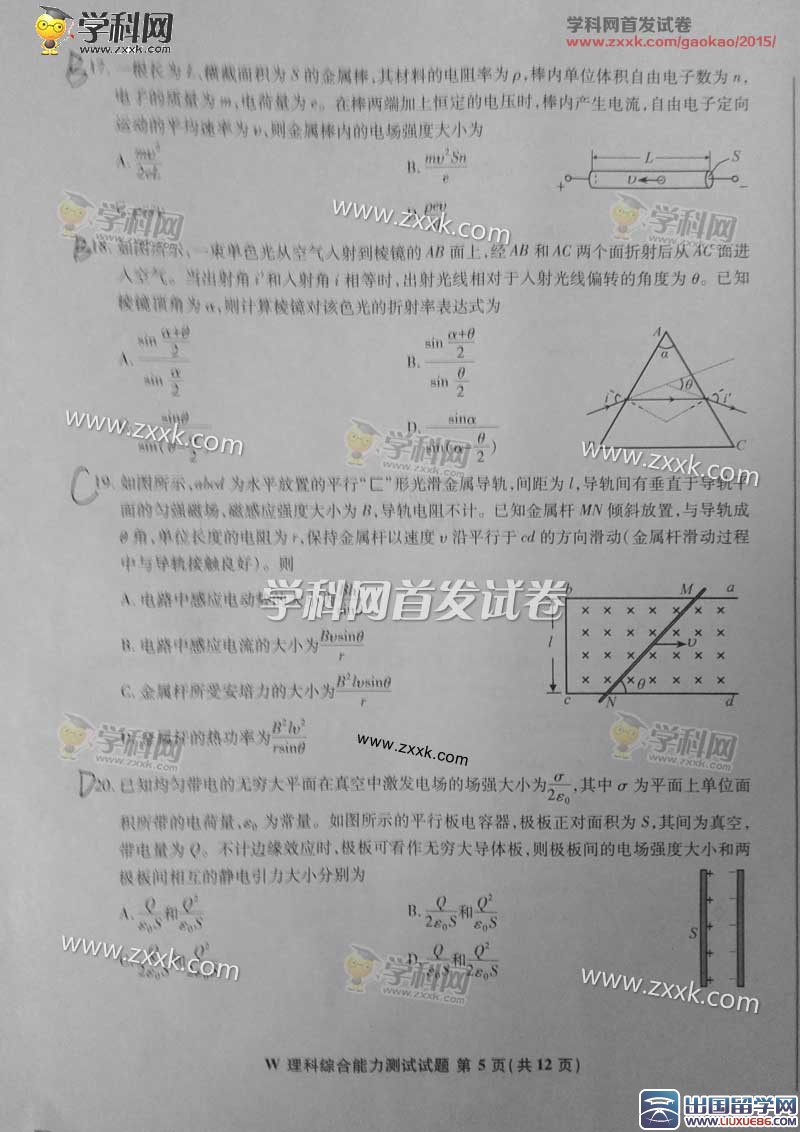 学科网
www.zxxk.com
学科网首发试卷
www.zxxk.com/gaokao/2015/
B 17. 一根长为 L、横截面积为 S 的金属棒,其材料的电阻率为 ρ,棒内单位体积自由电子数为 n,
电子的质量为 m,电荷量为 e。在棒两端加上恒定的电压时,棒内产生电流,自由电子定向
运动的平均速率为 υ,则金属棒内的电场强度大小为
A. mυ²/2eL
B. mυ²Sn/e
ρeυ
L S υ + −
学科网
www.zxxk.com
学科网
B 18. 如图所示,一束单色光从空气入射到棱镜的 AB 面上,经 AB 和 AC 两个面折射后从 AC 面进
入空气。当出射角 i′和入射角 i 相等时,出射光线相对于入射光线偏转的角度为 θ。已知
棱镜顶角为 α,则计算棱镜对该色光的折射率表达式为
A. sin (α+θ)/2 / sin α/2
B. sin (α+θ)/2 / sin θ/2
sinθ
D. sinα / sin(α−θ/2)
A α θ i i′ C
www.zxxk.com
学科网
www.zxxk.com
C 19. 如图所示,abcd 为水平放置的平行“匚”形光滑金属导轨,间距为 l,导轨间有垂直于导轨平
面的匀强磁场,磁感应强度大小为 B,导轨电阻不计。已知金属杆 MN 倾斜放置,与导轨成
θ 角,单位长度的电阻为 r,保持金属杆以速度 υ 沿平行于 cd 的方向滑动(金属杆滑动过程
中与导轨接触良好)。则
A. 电路中感应电动
学科网首发试卷
B. 电路中感应电流的大小为 Bυsinθ/r
C. 金属杆所受安培力的大小为 B²lυsinθ/r
金属杆的热功率为 B²lυ²/rsinθ
b M a l υ θ c N d
学科网
www.zxxk.com
学科网
D 20. 已知均匀带电的无穷大平面在真空中激发电场的场强大小为 σ/2ε₀,其中 σ 为平面上单位面
积所带的电荷量,ε₀ 为常量。如图所示的平行板电容器,极板正对面积为 S,其间为真空,
带电量为 Q。不计边缘效应时,极板可看作无穷大导体板,则极板间的电场强度大小和两
极板间相互的静电引力大小分别为
A. Q/ε₀S 和 Q²/ε₀S
B. Q/2ε₀S 和 Q²/ε₀S
D. Q/ε₀S 和 Q²/2ε₀S
S + −
www.zxxk.com
学科网
www.zxxk.com
W 理科综合能力测试试题 第 5 页(共 12 页)
出国留学网
www.liuxue86.com